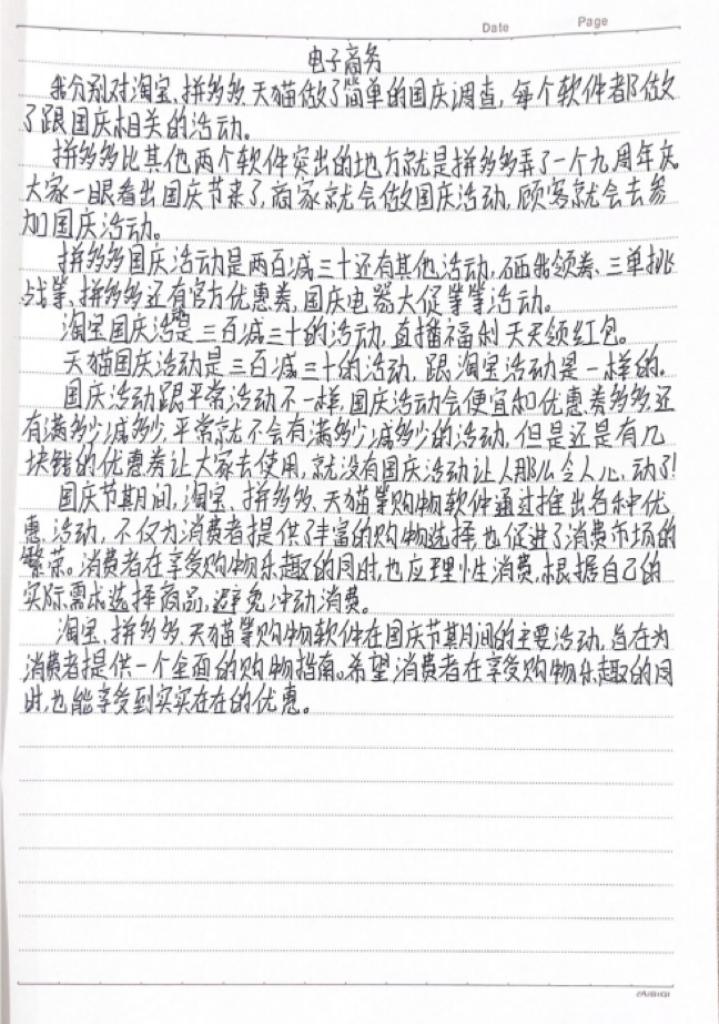 Date Page
电子商务
我分别对淘宝、拼多多、天猫做了简单的国庆调查,每个软件都做
了跟国庆相关的活动。
拼多多比其他两个软件突出的地方就是拼多多弄了一个九周年庆。
大家一眼看出国庆节来了,商家就会做国庆活动,顾客就会去参
加国庆活动。
拼多多国庆活动是两百减三十还有其他活动,砸我领券、三单挑
战等、拼多多还有官方优惠券,国庆电器大促等等活动。
淘宝国庆活动是三百减三十的活动,直播福利天天领红包。
天猫国庆活动是三百减三十的活动,跟淘宝活动是一样的。
国庆活动跟平常活动不一样,国庆活动会便宜和优惠券多多,还
有满多少减多少,平常就不会有满多少减多少的活动,但是还是有几
块钱的优惠券让大家去使用,就没有国庆活动让人那么令人心动了!
国庆节期间,淘宝、拼多多、天猫等购物软件通过推出各种优
惠活动,不仅为消费者提供了丰富的购物选择,也促进了消费市场的
繁荣。消费者在享受购物乐趣的同时,也应理性消费,根据自己的
实际需求选择商品,避免冲动消费。
淘宝、拼多多、天猫等购物软件在国庆节期间的主要活动,旨在为
消费者提供一个全面的购物指南。希望消费者在享受购物乐趣的同
时,也能享受到实实在在的优惠。